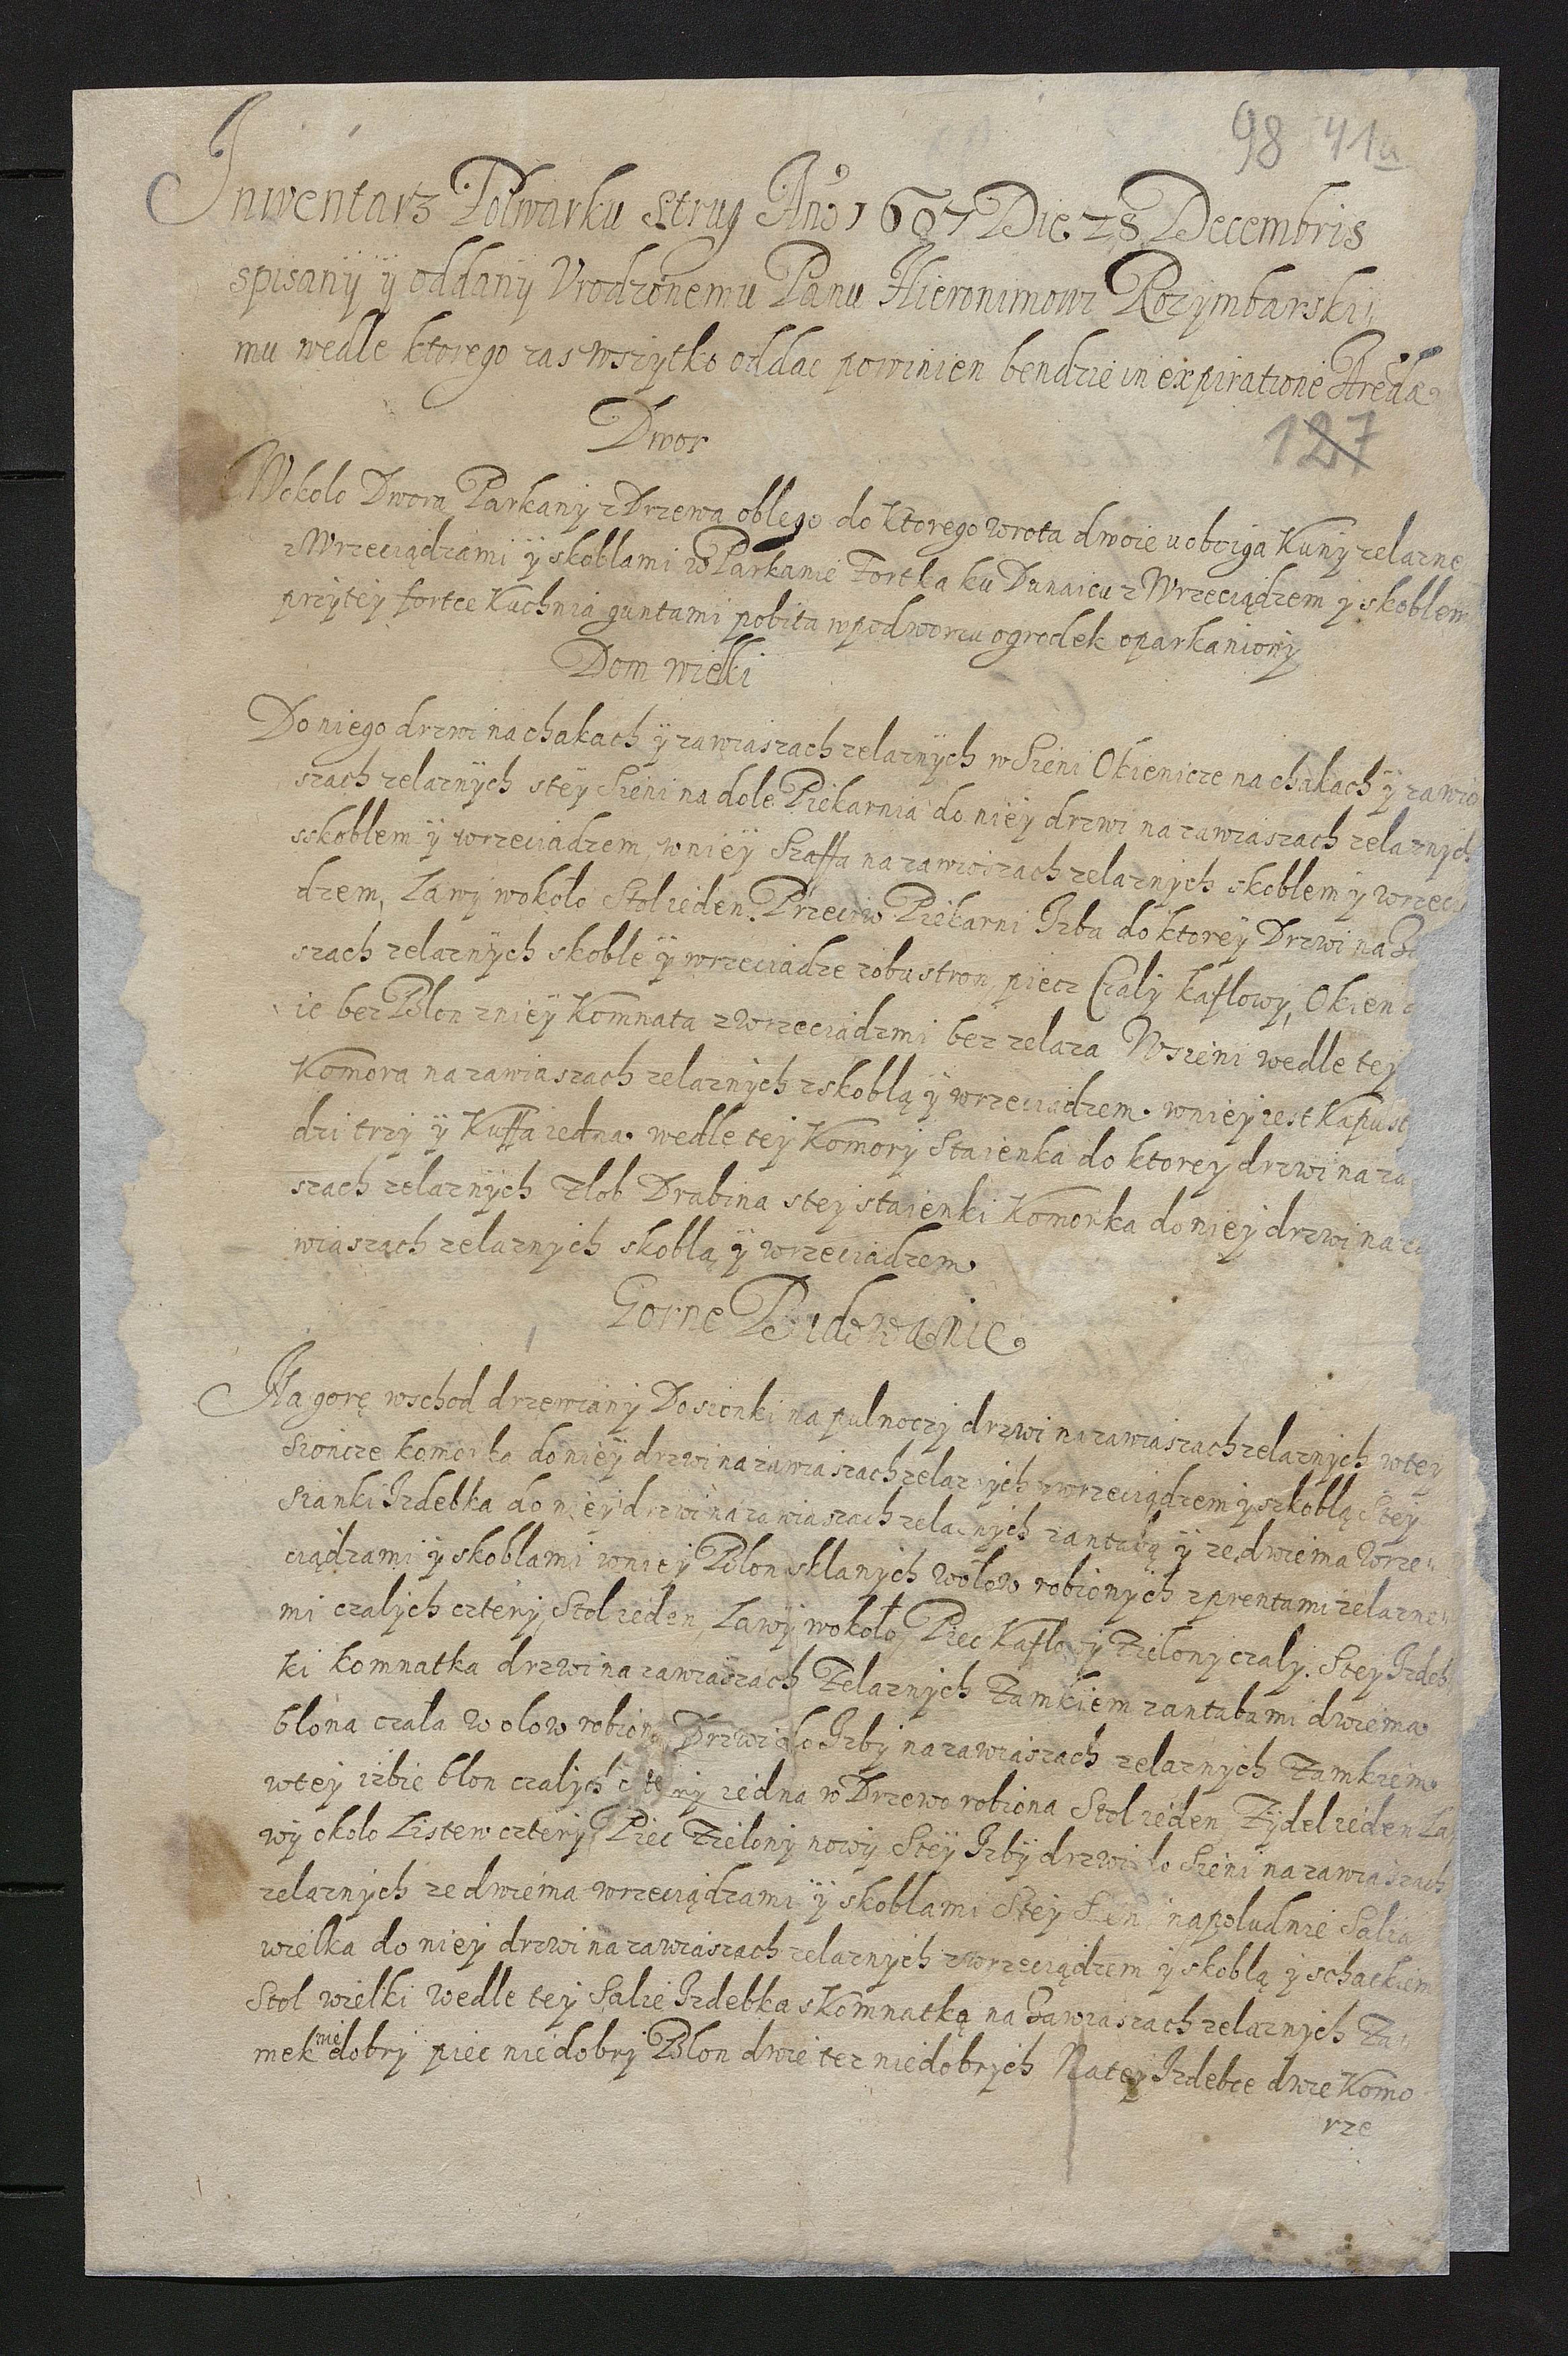 98 41a
Inwentarz Folwarku Strug Anō 1607 Die 28 Decembris
spisanÿ ÿ oddanÿ Vrodzonemu Panu Hieronimowi Rozymbarski„
mu wedle ktorego zas wszytko oddac powinien bendzie in expiratione Arēdæ
127
Dwor
Wokolo Dwora Parkany z Drzewa oblego do ktorego wrota dwoie u oboiga Kuny zelazne
z Wrzeciądzami ÿ skoblami w Parkanie Fortka ku Dunaicu z Wrzeciądzem y skoblem
przy tey fortce Kuchnia guntami pobita w podworcu ogrodek oparkaniony
Dom wielki
Do niego drzwi na chakach ÿ zawiaszach zelaznÿch w Sieni Okienicze na chakach ÿ zawia
szach zelaznÿch s teÿ Sieni na dole Piekarnia do nieÿ drzwi na zawiaszach zelaznych
s skoblem ÿ wrzeciadzem, w nieÿ Szaffa na zawiozach zelaznych skoblem y wrzecia
dzem, Lawy wokolo Stol ieden. Przeciw Piekarni Izba do ktoreÿ Drzwi na Za
szach zelaznÿch skoble ÿ wrzeciadze z obu stron, piecz Czaly kaflowy, Okienc
ie bez Blon z nieÿ Komnata z Wrzeciadzmi bez zelaza W sieni wedle tey
Komora na zawiaszach zelaznych z skoblą ÿ wrzeciadzem. w niey iest Kapust
dzi trzy ÿ Kuffa iedna. wedle tey Komory Staienka do ktorey drzwi na za
szach zelaznÿch Zlob Drabina s tey staienki Komorka do niey drzwi na za
wiaszach zelaznych skoblą ÿ wrzeciadzem.
Gorne Budowanie.
Na gorę wschod drzewiany Do sionki na pulnoczy drzwi na zawiaszach zelaznych w tey
Sioncze komorka do nieÿ drzwi na zawiaszach zelaznych z wrzeciądzem y szkoblą S tey
Sianki Izdebka do nieÿ drzwi na zawiaszach zelaznych z antabą ÿ ze dwiema Wrze„
ciądzami ÿ skoblami w niey Blon sklanych w olow robionych z prentami zelazne„
mi czalych cztery, Stol ieden, Lawÿ wokoło, Piec Kaflowy Zielony czaly. S tey Izdeb
ki komnatka drzwi na zawiaszach Zelaznych Zamkiem z antabami dwiema
blona czala w olow robiona Drzwi do Izby na zawiaszach zelaznych Zamkiem.
w tey izbie blon czalych cztery iedna w Drzewo robiona Stol ieden, Zydel ieden La
wy okolo Listew cztery, Piec Zielony nowy S teÿ Izbÿ drzwi do Sieni na zawiaszach
zelaznych ze dwiema wrzeciądzami ÿ skoblami S tey Sieni na poludnie Salia
wielka do niey drzwi na zawiaszach zelaznych z wrzeciądzem y skoblą y s chackiem
Stol wielki wedle tey Salie Izdebka s Komnatką na Zawiaszach zelaznych Za„
mek nie dobry piec nie dobry Blon dwie tez nie dobrych Na tey Izdebce dwie Komo
rze